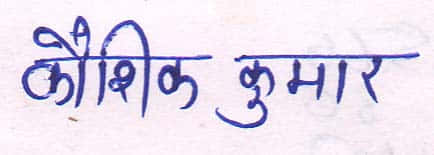 कौशिक कुमार